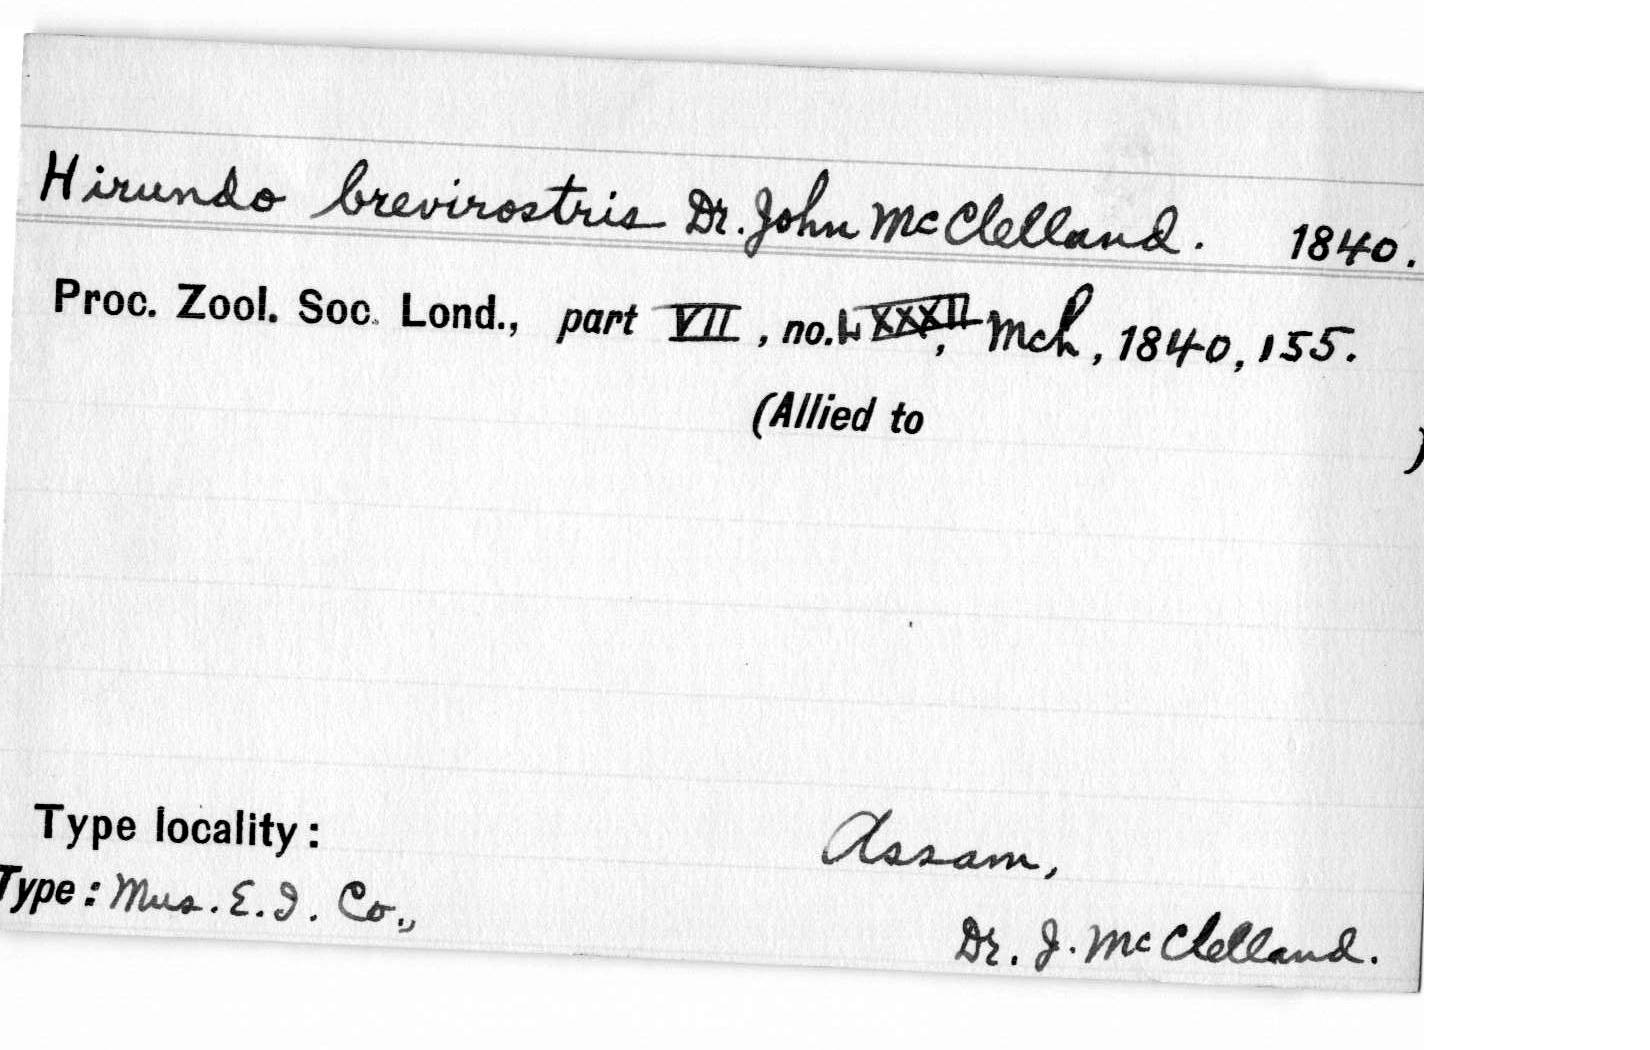 Hirundo brevirostris Dr. John McClelland. 1840.
Proc. Zool. Soc. Lond., part VII, no. LXXXII, Mch, 1840, 155.
(Allied to )
Type locality: Assam,
Type: Mus. E. I. Co.,
Dr. J. McClelland.